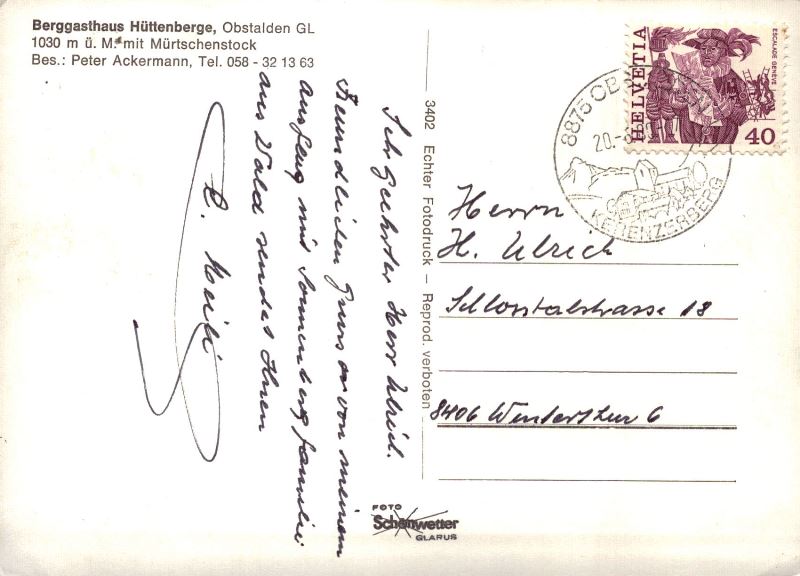 Berggasthaus Hüttenberge, Obstalden GL
1030 m ü. M. mit Mürtschenstock
Bes.: Peter Ackermann, Tel. 058 - 32 13 63
Ich geehrter Herr Ulrich.
Freundlichen Gruss von meinem
ausflug mit Sonnenberg familie
aus Wald sendet Ihnen
3402 Echter Fotodruck – Reprod. verboten
HELVETIA
ESCALADE GENÈVE
40
8875 OBSTALDEN
20.
KERENZERBERG
Herrn
H. Ulrich
Schlosstalstrasse 18
8406 Winterthur 6
FOTO
Schönwetter
GLARUS